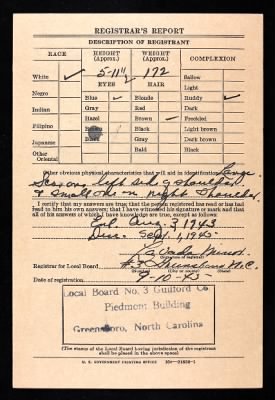 REGISTRAR'S REPORT
DESCRIPTION OF REGISTRANT
RACE HEIGHT (Approx.) WEIGHT (Approx.) COMPLEXION
5-11 172
EYES HAIR
White ✓ Sallow
Light
Negro Blue ✓ Blonde Ruddy ✓
Gray Red Dark
Indian Hazel Brown ✓ Freckled
Filipino Brown Black Light brown
Japanese Black Gray Dark brown
Other Oriental Bald Black
Other obvious physical characteristics that will aid in identification Large
Scar on Left and shoulder
Small on Right Shoulder
I certify that my answers are true; that the person registered has read or has had
read to him his own answers; that I have witnessed his signature or mark and that
all of his answers of which I have knowledge are true, except as follows:
Aug. 3 1943
Sept. 1, 1943
Registrar for Local Board #3 Greensboro N.C.
Date of registration
Local Board No. 3 Guilford Co.
Piedmont Building
Greensboro, North Carolina
(The stamp of the Local Board having jurisdiction of the registrant
shall be placed in the above space)
U. S. GOVERNMENT PRINTING OFFICE 16—21630-1